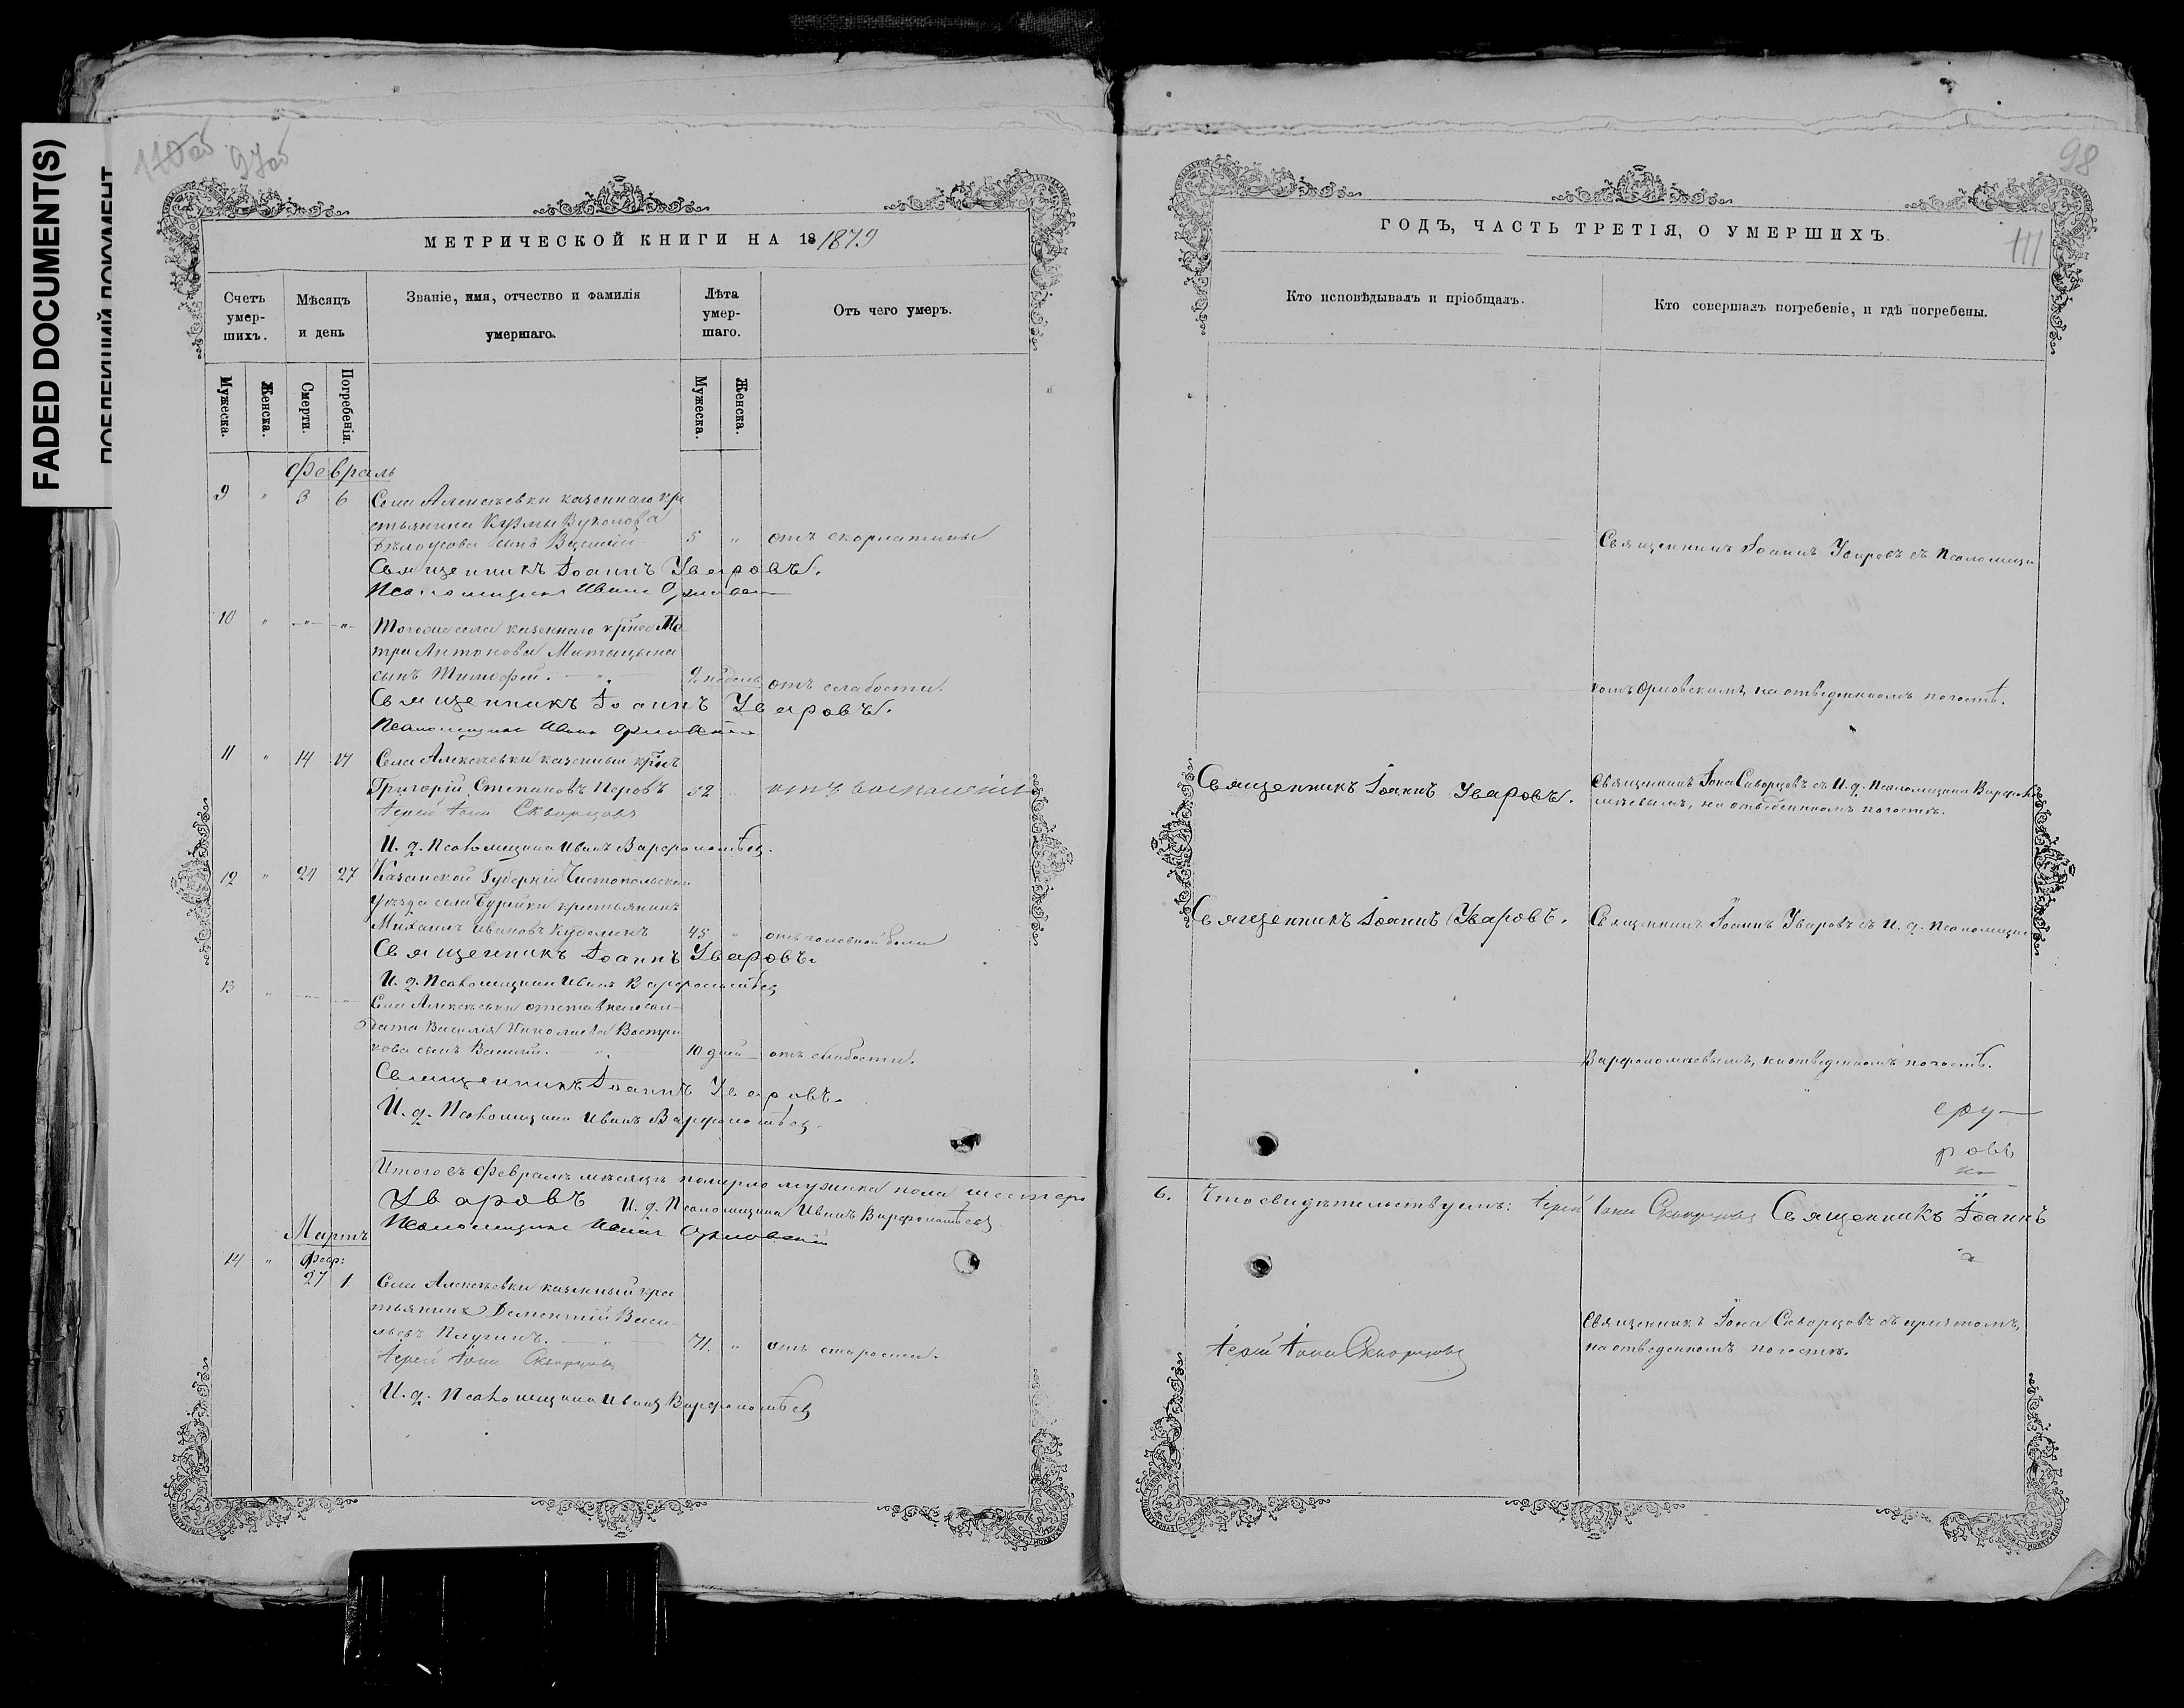 FADED DOCUMENT(S)
110об 97об
МЕТРИЧЕСКОЙ КНИГИ НА 18 1879
Счетъ умер-шихъ.
Мѣсяцъ и день
Званіе, имя, отчество и фамилія умершаго.
Лѣта умер-шаго.
Отъ чего умеръ.
Мужеска.
Женска.
Смерти.
Погребенія.
Мужеска.
Женска.
Февраль
9 " 3 6 Села Алексѣевки казеннаго кре
стьянина Кузмы Вуколова
Бѣлоусова сынъ Василій 5 " отъ скорлатины
Священникъ Іоаннъ Уваровъ.
Псаломщикъ Иванъ
10 " -"- -"- Тогоже села казеннаго
Антонова
сынъ Тимофей. 2 недель отъ слабости.
Священникъ Іоаннъ Уваровъ.
Псаломщикъ Иванъ Орловскій
11 " 14 17 Села Алексѣевки казенный
Григорій Степановъ Перовъ 52 отъ воспаленія
Іерей Іона Скворцовъ
И. д. Псаломщика Иванъ Варфоломѣев
12 " 24 27 Казанской Губерніи Чистопольскаго
Уѣзда села крестьянинъ
Михаилъ Ивановъ 45 " отъ головной боли
Священникъ Іоаннъ Уваровъ.
И. д. Псаломщика Иванъ Варфоломѣев
13 " -"- -"-
Села Алексѣевки отставнаго сол-
дата Василія Николаева Востри
кова сынъ Василій. 10 дней отъ слабости.
Священникъ Іоаннъ Уваровъ.
И. д. Псаломщика Иванъ Варфоломѣев
Итого въ Февралѣ мѣсяцѣ померло мужеска пола шестеро
Уваровъ И. д. Псаломщика Иванъ Варфоломѣев
Псаломщикъ Иванъ Орловскій
Мартъ
14 " Февр:
27 1 Села Алексѣевки казенный кре
стьянинъ Дементій Васи-
льевъ 71. " отъ старости.
Іерей Іона Скворцовъ
И. д. Псаломщика Иванъ Варфоломѣев
98
ГОДЪ, ЧАСТЬ ТРЕТІЯ, О УМЕРШИХЪ.
111
Кто исповѣдывалъ и пріобщалъ.
Кто совершалъ погребеніе, и гдѣ погребены.
Священникъ Іоаннъ Уваровъ съ Псаломщи
комъ Орловскимъ на отведенномъ погостѣ.
Священникъ Іоаннъ Уваровъ.
Священникъ Іона Скворцовъ съ И. д. Псаломщика Варфоло
мѣевымъ, на отведенномъ погостѣ.
Священникъ Іоаннъ Уваровъ.
Священникъ Іоаннъ Уваровъ съ И. д. Псаломщика
Варфоломѣевымъ, на отведенномъ погостѣ.
ровъ
6. Что свидѣтельствуемъ: Іерей Іона Скворцовъ Священникъ Іоаннъ
Священникъ Іона Скворцовъ съ причтомъ,
Іерей Іона Скворцовъ
на отведенномъ погостѣ.